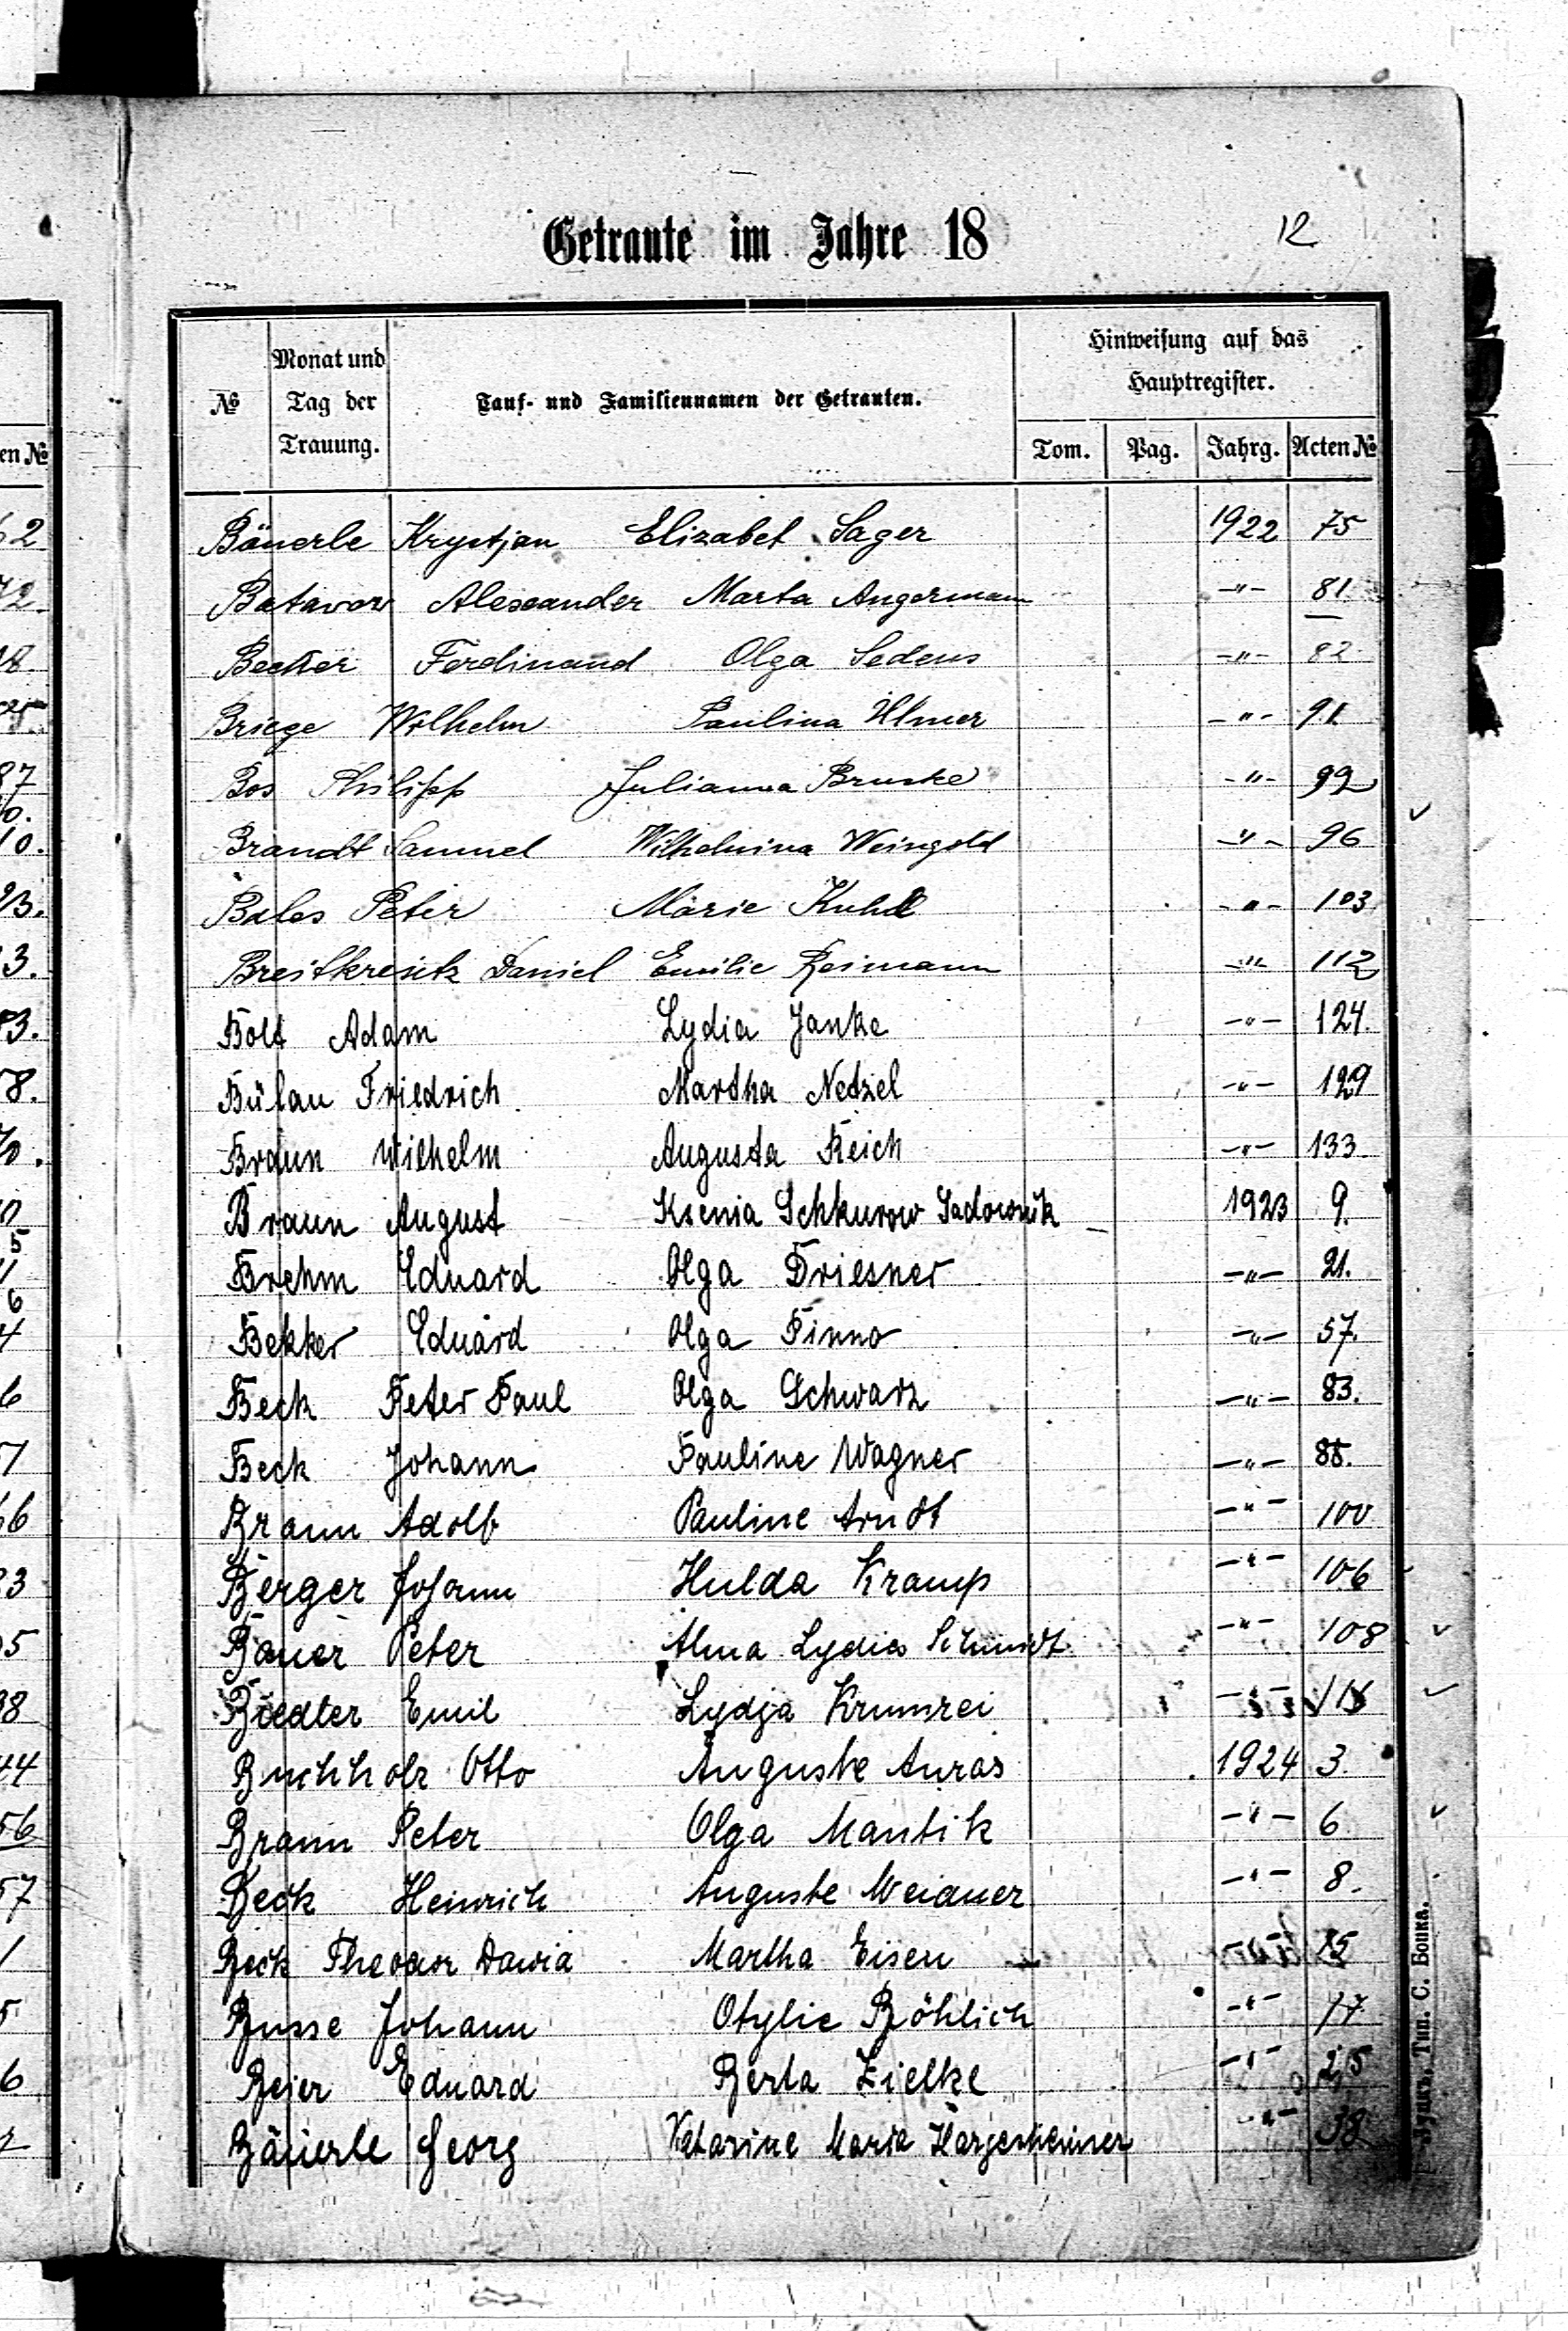 Getraute im Jahre 18
12
№
Monat und Tag der Trauung.
Tauf- und Familiennamen der Getrauten.
Hinweisung auf das Hauptregister.
Tom. Pag. Jahrg. Acten №
Bäuerle Krystjan Elizabet Sager 1922 75
Batavow Alexander Marta Angermann -"- 81
Becker Ferdinand Olga Sedeus -"- 82
Briege Wilhelm Paulina Ulmer -"- 91
Bos Philipp Julianna Bruske -"- 92
Brandt Samuel Wilhelmina Weingold -"- 96
Bales Peter Marie Kuhl -"- 103
Breitkreutz Daniel Emilie Reimann -"- 112
Bolt Adam Lydia Janke -"- 124.
Bülau Friedrich Martha Netzel -"- 129
Braun Wilhelm Augusta Reich -"- 133
Braun August Ksenia Schkurow Sadownik 1923 9.
Brehm Eduard Olga Driesner -"- 21.
Bekker Eduard Olga Finno -"- 57.
Beck Peter Paul Olga Schwarz -"- 83.
Beck Johann Pauline Wagner -"- 85.
Braun Adolf Pauline Arndt -"- 100
Berger Johann Hulda Kramp -"- 106
Bauer Peter Alma Lydia Schmidt -"- 108
Boedter Emil Lydja Krumrei -"-
Buchholz Otto Auguste Auras 1924 3.
Braun Peter Olga Mantik -"- 6
Beck Heinrich Auguste Weidner -"- 8.
Beck Theodor Dawid Martha Eisen -"- 15
Busse Johann Otylie Böhlich -"- 17
Beier Eduard Berta Zielke -"- 25
Bäuerle Georg Katarine Maria Hargesheimer -"- 38
Тип. С. Бонка.